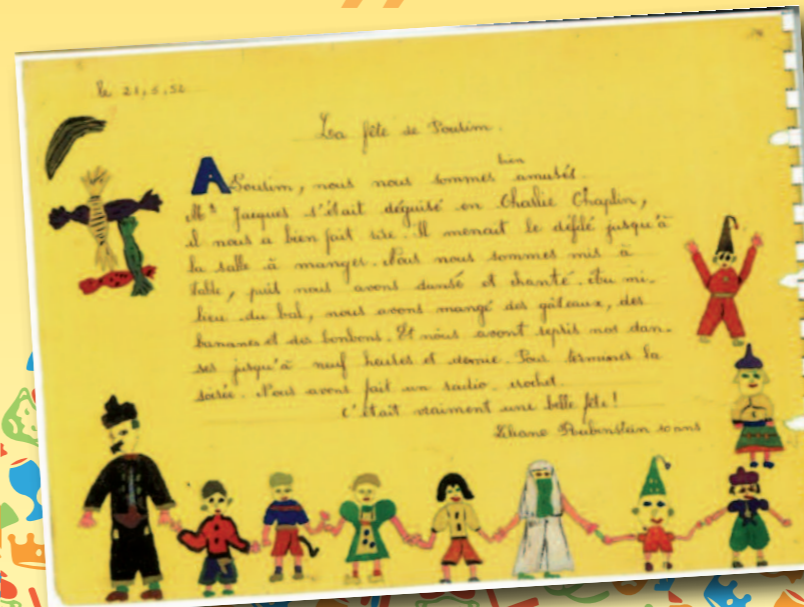 le 21.5.52
La fête de Pourim.
bien
A Pourim, nous nous sommes amusés.
Mr Jacques s'était déguisé en Charlie Chaplin,
il nous a bien fait rire. Il menait le défilé jusqu'à
la salle à manger. Nous nous sommes mis à
table, puis nous avons dansé et chanté. Au mi-
lieu du bal, nous avons mangé des gâteaux, des
bananes et des bonbons. Et nous avont repris nos dan-
ses jusqu'à neuf heures et demie. Pour terminer la
soirée. Nous avons fait un radio-crochet.
C'était vraiment une belle fête!
Liliane Rubenstein 10 ans